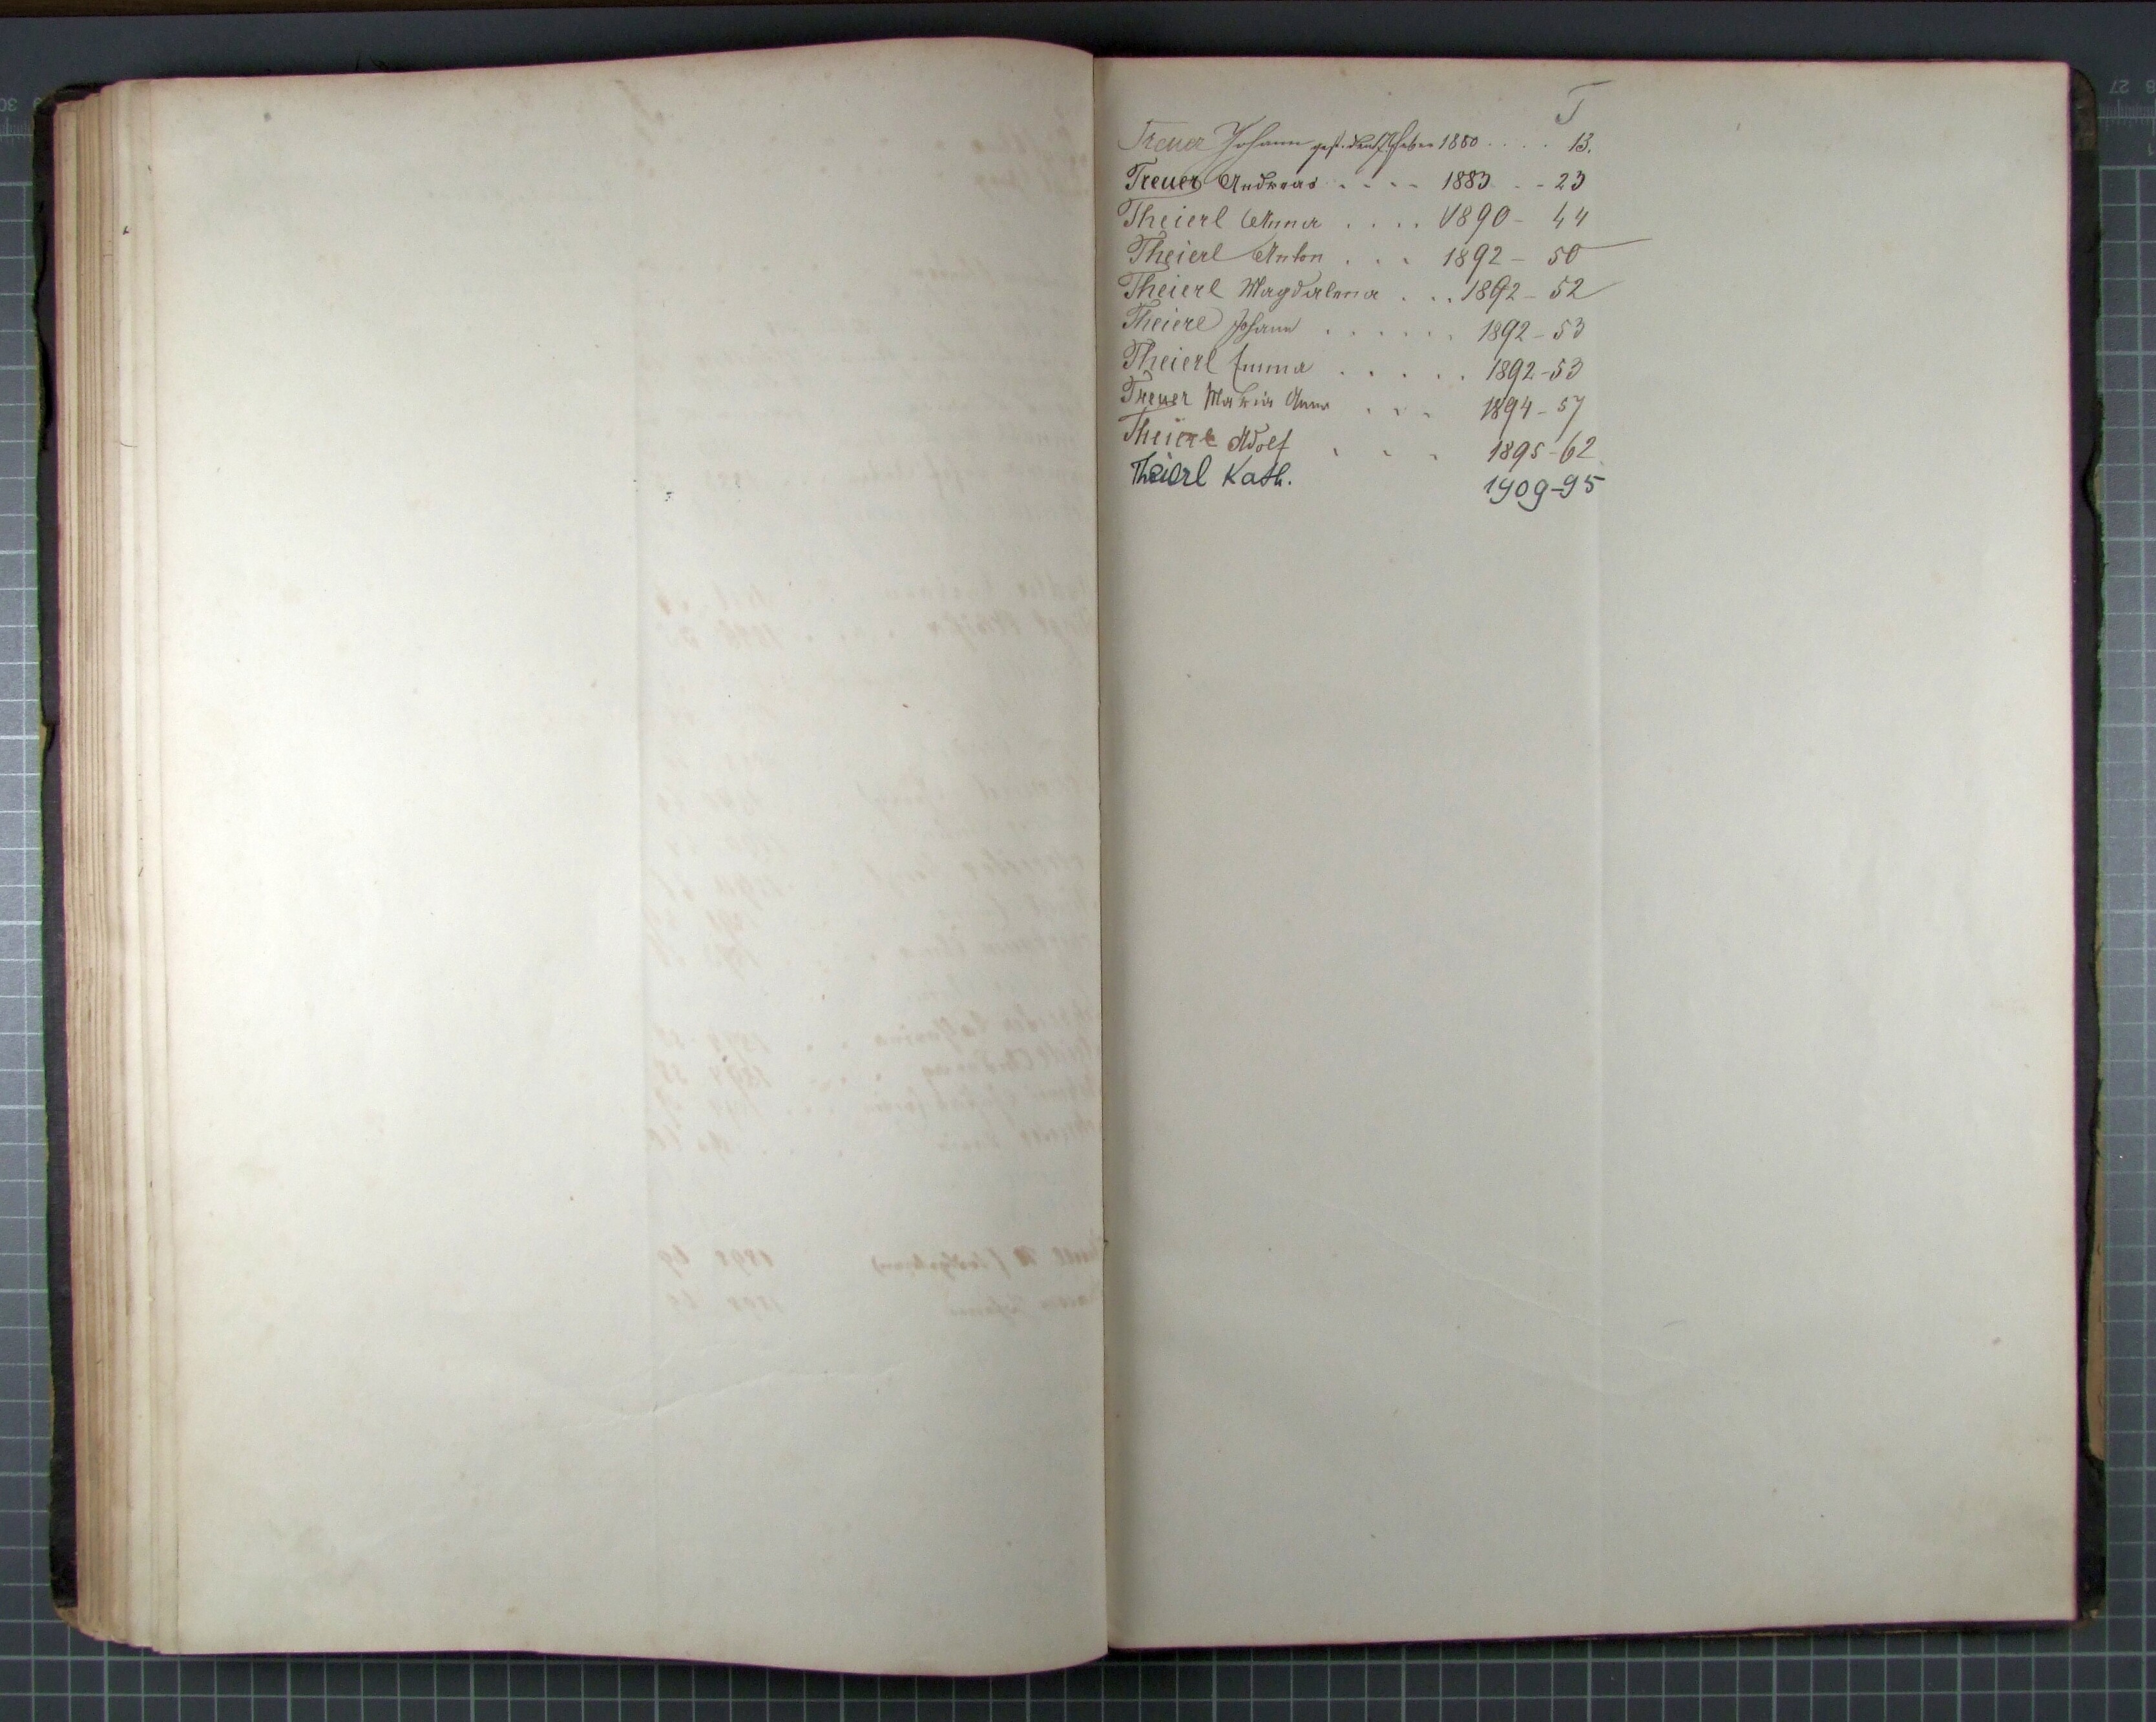 T
Treuer Johann gest. den 1880 . . . . 13.
Treuer Andreas . . . . 1883 . - 23
Theierl Anna . . . . 1890 - 44
Theierl Anton . . . 1892 - 50
Theierl Magdalena . . . 1892 - 52
Theierl Johann . . . . . . 1892 - 53
Theierl Emma . . . . . 1892 - 53
Treuer Maria Anna . . . 1894 - 57
Theierl Adolf . . . 1895 - 62
Theierl Kath. 1909 - 95